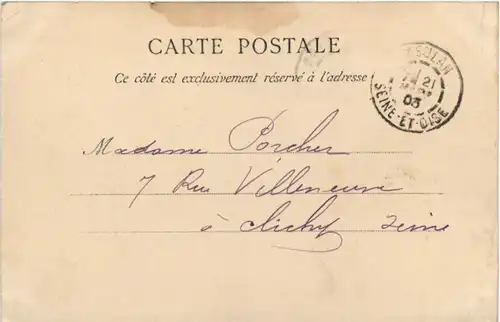 CARTE POSTALE
Ce côté est exclusivement réservé à l'adresse
21
03
SEINE-ET-OISE
Madame Porcher
7 Rue Villeneuve
à Clichy Seine